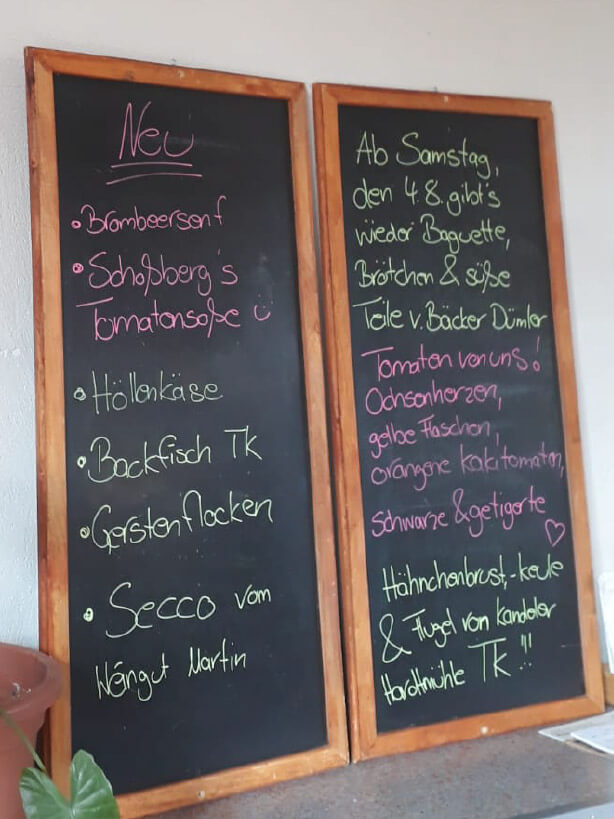 Neu
• Brombeersenf
• Schoßberg's
Tomatensoße ü
• Höllenkäse
• Backfisch TK
• Gerstenflocken
• Secco vom
Weingut Martin
Ab Samstag,
den 4.8. gibt's
wieder Baguette,
Brötchen & süße
Teile v. Bäcker Dümler
Tomaten von uns!
Ochsenherzen,
gelbe Flaschen,
orangene Kakitomaten,
schwarze & getigerte ♡
Hähnchenbrust, -keule
& Flügel von Kandeler
Hardtmühle TK !!!